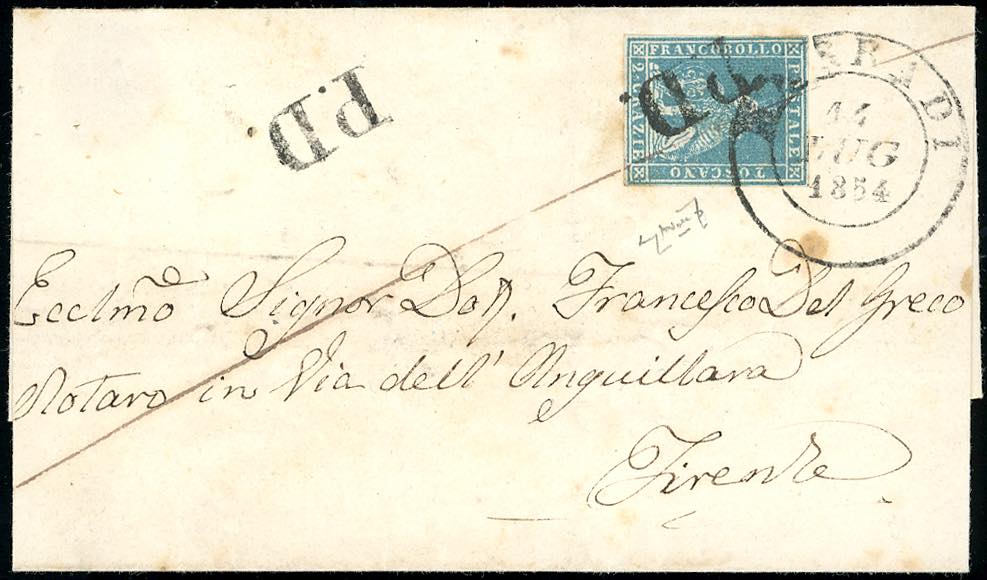 P.D.
FRANCOBOLLO
POSTALE
TOSCANO
2. CRAZIE
P.D.
14
LUG
1854
Ecclmõ Signor Dott. Francesco Del Greco
Notaro in Via dell' Anguillara
Firenze